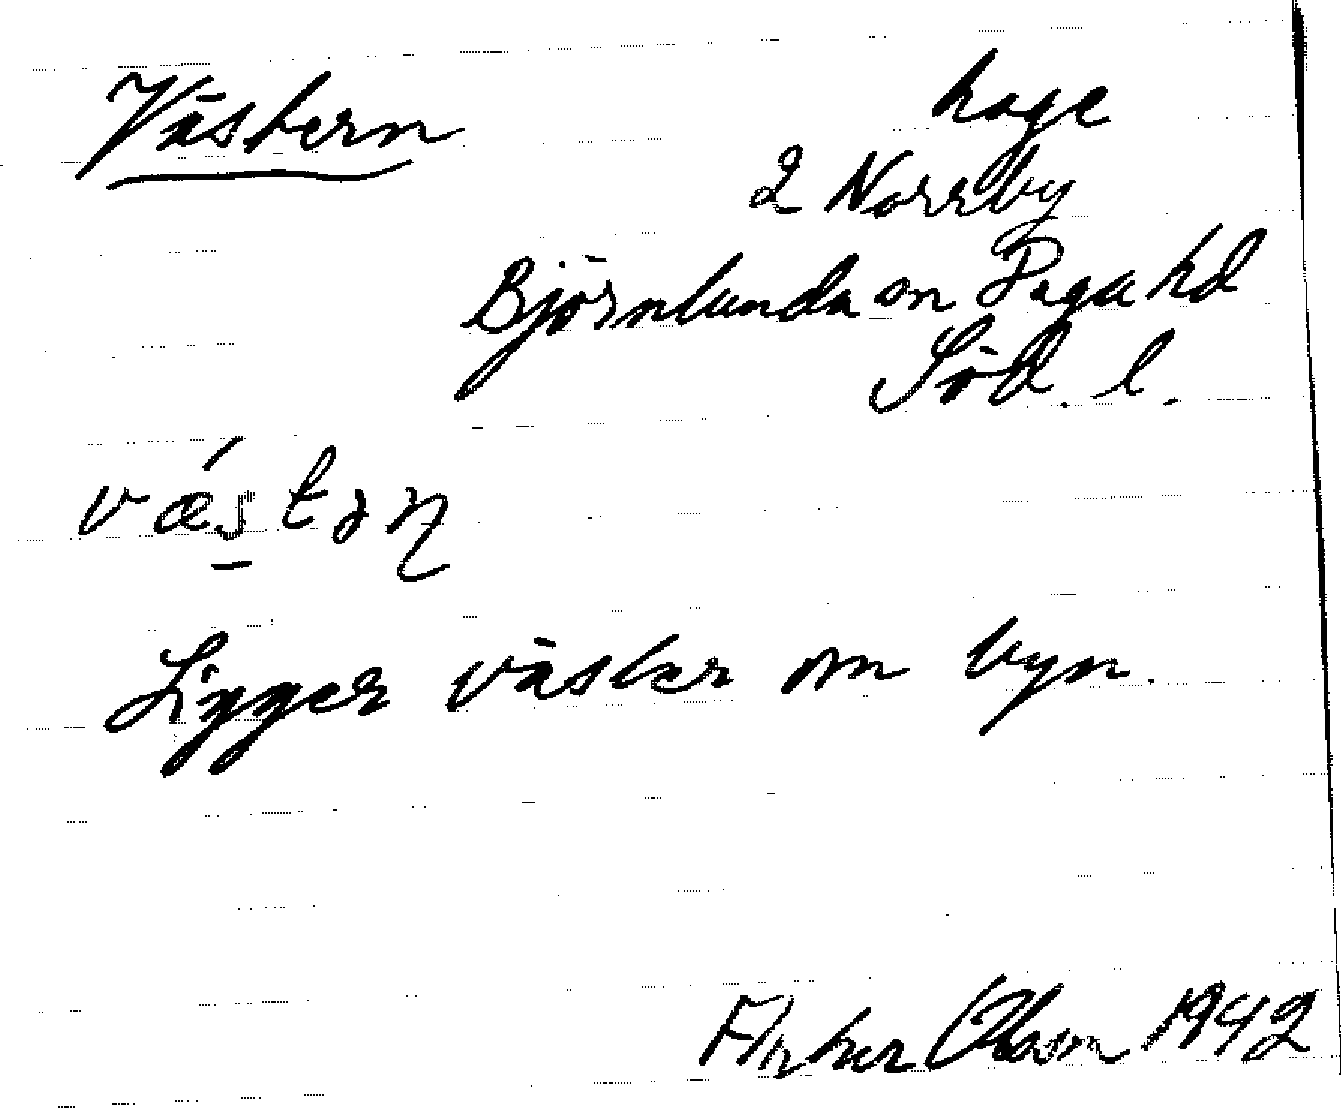 Västern
hage
2 Norrby
Björnlunda sn Daga hd
Söd. l.
Ligger väster om byn.
Olsson 1942